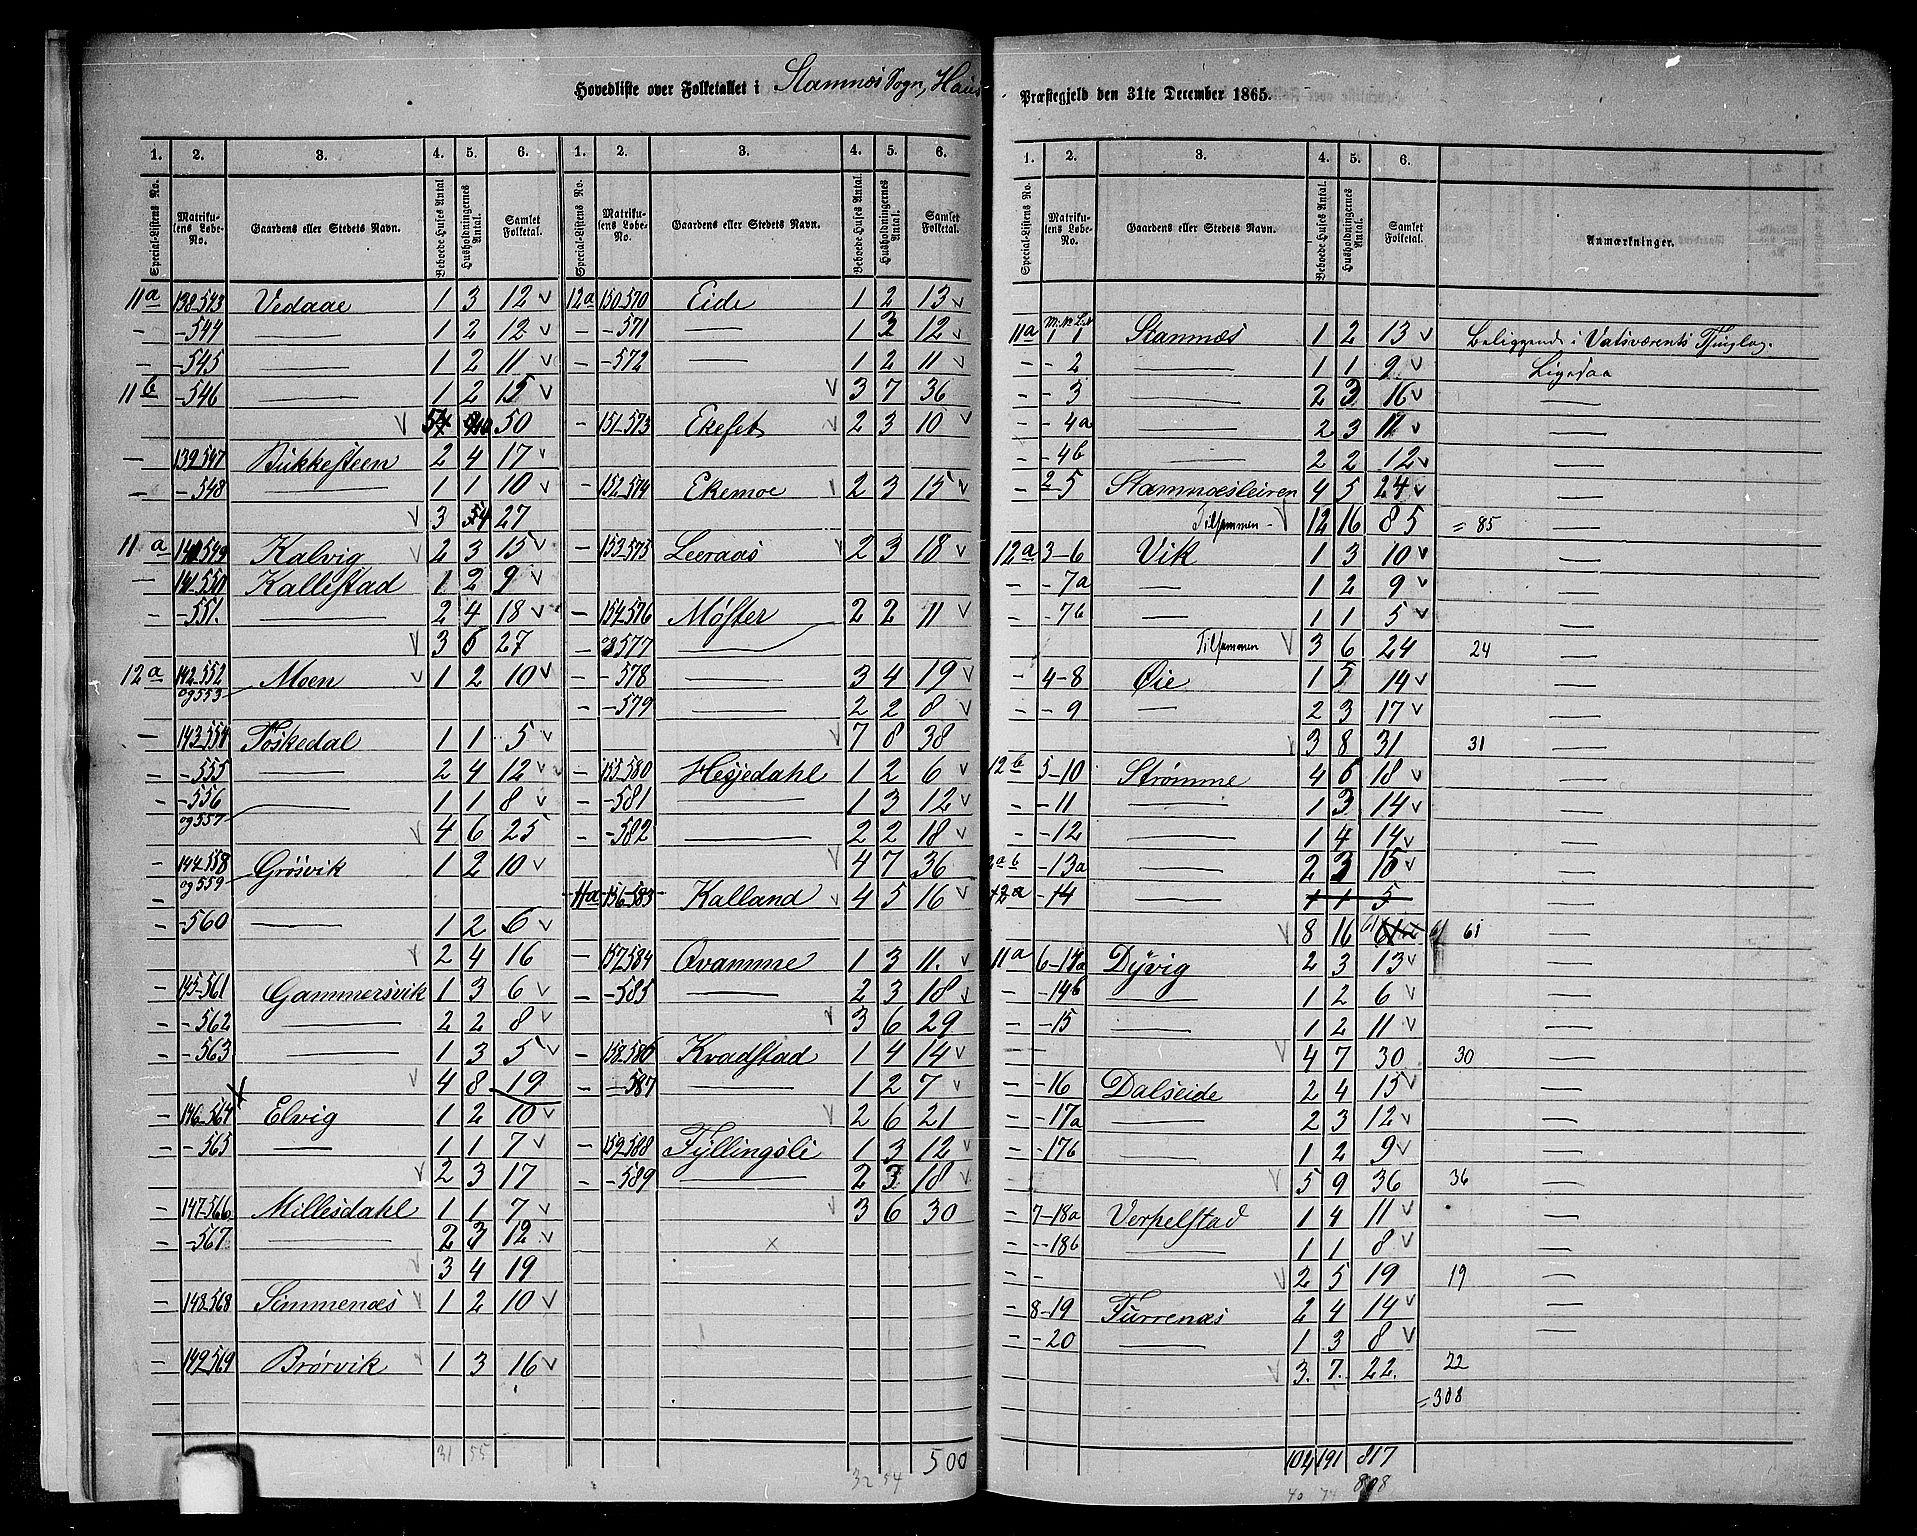 Hovedliste over Folketallet i Stamnæs Sogn, Haus
Præstegjeld den 31te December 1865.
1. 2. 3. 4. 5. 6. 1. 2. 3. 4. 5. 6.
Special-Listens No. Matrikulens Løbe-No. Gaardens eller Stedets Navn. Beboede Huses Antal Husholdningernes Antal. Samlet Folketal. Special-Listens No. Matrikulens Løbe-No. Gaardens eller Stedets Navn. Beboede Huses Antal. Husholdningernes Antal. Samlet Folketal.
11a 138-543 Vedaae 1 3 12 v
- -544 — 1 2 12 v
- -545 — 1 2 11 v
11b -546 — 1 2 15 v
v 50
- 139-547 Bukkesteen 2 4 17 v
- -548 — 1 1 10 v
v 3 27
11a 140-549 Kalvig v 2 3 15 v
- 141-550 Kallestad 1 2 9 v
- -551. — 2 4 18 v
v 3 6 27
12a 142-552 Moen v 1 2 10 v
og 553
- 143-554 Foskedal 1 1 5 v
- -555 — 2 4 12 v
- -556 — 1 1 8 v
- og 557 v 4 6 25
- 144-558 Grøsvik 1 2 10 v
- og 559
- -560 — 1 2 6 v
v 2 4 16
- 145-561 Gammersvik 1 3 6 v
- -562 — 2 2 8 v
- -563 — 1 3 5 v
v 4 8 19
- 146-564 Elvig 1 2 10 v
- -565 — 1 1 7 v
v 2 3 17
- 147-566 Millesdahl 1 1 7 v
- -567 — 2 3 12 v
v 3 4 19
- 148-568 Simmenæs v 1 2 10 v
- 149-569 Brørvik v 1 3 16 v
31 55
12a 150-570 Eide 1 2 13 v
- -571 — 1 3 12 v
- -572 — 1 2 11 v
v 3 7 36
- 151-573 Ekeset v 2 3 10 v
- 152-574 Ekemoe v 2 3 15 v
- 153-575 Leeraas v 2 3 18 v
- 154-576 Møster 2 2 11 v
- og 577 —
- -578 — 3 4 19 v
- -579 — 2 2 8 v
v 7 8 38
- 155-580 Hesjedahl 1 2 6 v
- -581 — 1 3 12 v
- -582 — 2 2 18 v
v 4 7 36
11a 156-583 Kalland v 4 5 16 v
- 157-584 Qvamme 1 3 11. v
- -585 — 2 3 18 v
v 3 6 29
- 158-586 Kvadstad 1 4 14 v
- -587 — 1 2 7 v
v 2 6 21
- 159-588 Fyllingsli 1 3 12 v
- -589 — 2 3 18 v
v 3 6 30
x
500
32 54
1. 2. 3. 4. 5. 6.
Special-Listens No. Matrikulens Løbe-No. Gaardens eller Stedets Navn. Beboede Huses Antal. Husholdningernes Antal. Samlet Folketal. Anmærkninger.
M.No L.N
11a 1 1 Stamnæs 1 2 13 v Beliggende i Vatsværents Thinglag.
- -2 — 1 1 9 v Ligesaa
- -3 — 2 3 16 v —
- -4a — 2 3 11 v —
- -4b — 2 2 12 v —
- 2-5 Stamnæsleiren 4 5 24 v —
Tilsammen - v 12 16 85 = 85 —
12a 3-6 Vik 1 3 10 v —
- -7a — 1 2 9 v —
- -7b — 1 1 5 v —
Tilsammen v 3 6 24 24 —
- 4-8 Øie 1 5 14 v —
- -9 — 2 3 17 v —
v 3 8 31 31 —
12b 5-10 Strømme 4 6 18 v —
- -11 — 1 3 14 v —
- -12 — 1 4 14 v —
2a b -13a — 2 3 15 v —
12a -14 — 1 1 5 —
v 8 16 61 61 —
11a 6-13a Dyvig 2 3 13 v —
- -14b — 1 2 6 v —
- -15 — 1 2 11 v —
v 4 7 30 30 —
- -16 Dalseide 2 4 15 v —
- -17a — 2 3 12 v —
- -17b — 1 2 9 v —
v 5 9 36 36 —
- 7-18a Verpelstad 1 4 11 v —
- -18b — 1 1 8 v —
- - v 2 5 19 19 —
- 8-19 Furrenæs 2 4 14 v —
- -20 — 1 3 8 v —
v 3. 7. 22. 22 —
= 308
104 191 817
40 74 808